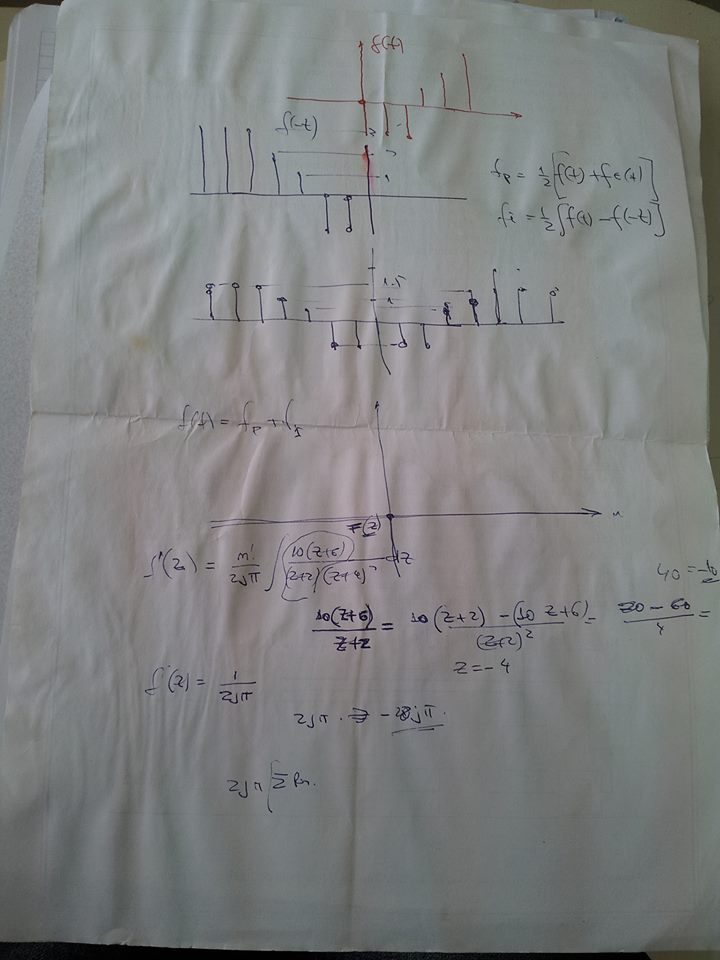 f(t)
f(-t)
1
fp = 1/2[f(t) + fe(t)]
fi = 1/2[f(t) - f(-t)]
1.5
1
f(t) = fp + fi
F(z)
f'(z) = n!/2jπ ∫ 10(z+6)/(z+2)(z+4)² dz
40 = -10
10(z+6)/z+2 = 10(z+2) - (10 z+6)/(z+2)² = -20 - 60/4 =
z = -4
f(z) = 1/2jπ
2jπ . - 20jπ.
2jπ